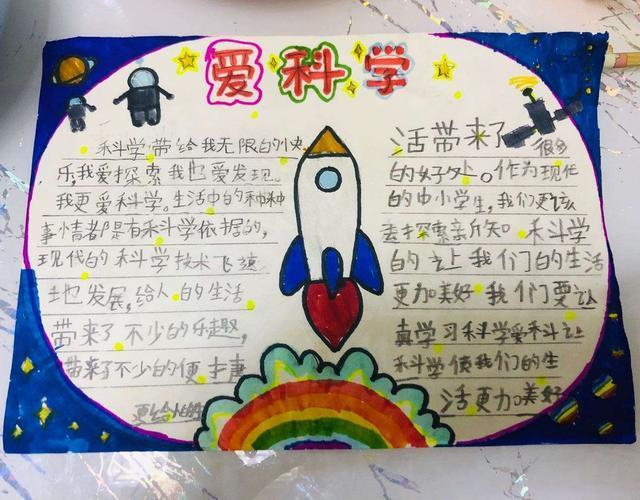 爱科学
科学带给我无限的快
乐,我爱探索我也爱发现。
我更爱科学。生活中的种种
事情都是有科学依据的,
现代的科学技术飞速
地发展,给人的生活
带来了不少的乐趣,
带来了不少的便
更给他的
活带来了很多
的好处。作为现代
的中小学生,我们更该
去探索新知 科学
的 让我们的生活
更加美好 我们要认
真学习科学爱科 让
科学使我们的生
活更加美好